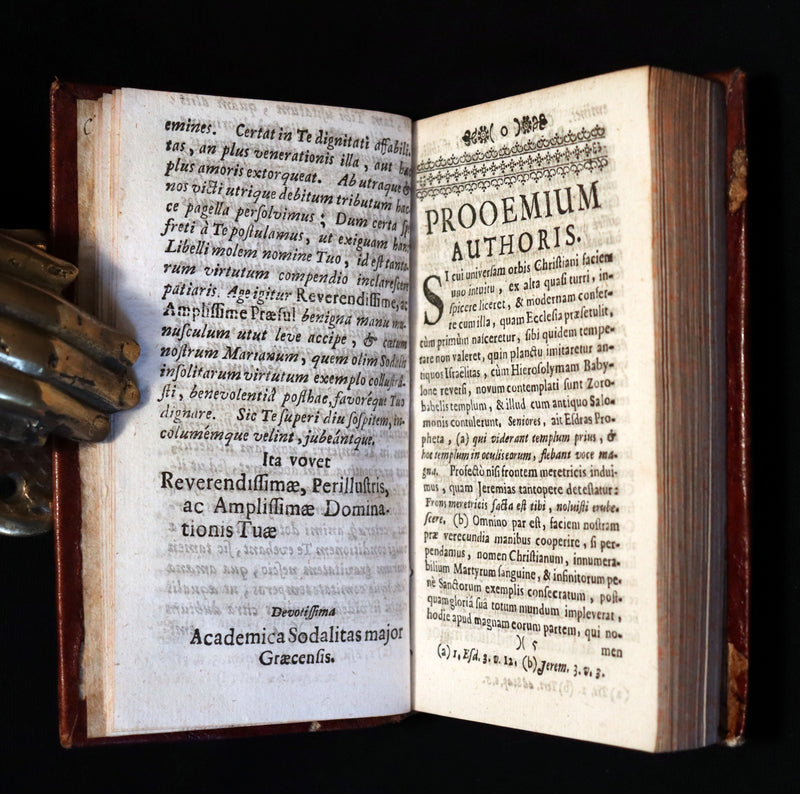 emines. Certat in Te dignitati affabili-
tas, an plus venerationis illa, aut hæc
plus amoris extorqueat. Ab utraque &
nos victi utrique debitum tributum hac-
ce pagella persolvimus; Dum certa sp
freti à Te postulamus, ut exiguam hanc
Libelli molem nomine Tuo, id est tanta-
rum virtutum compendio inclarescere
patiaris. Age igitur Reverendissime, ac
Amplissime Præsul benigna manu mu-
nusculum utut leve accipe, & cœtum
nostrum Marianum, quem olim Sodalis
insolitarum virtutum exemplo collustra-
sti, benevolentiâ posthac, favoréque Tuo
dignare. Sic Te superi diu sospitem, in-
columémque velint, jubeántque.
Ita vovet
Reverendissimæ, Perillustris,
ac Amplissimæ Domina-
tionis Tuæ
Devotissima
Academica Sodalitas major
Græcensis.
)( 0 )(
PROOEMIUM
AUTHORIS.
SI cui universam orbis Christiani faciem
uno intuitu, ex alta quasi turri, in-
spicere liceret, & modernam confer-
re cum illa, quam Ecclesia præsetulit,
cùm primùm nasceretur, sibi quidem tempe-
rare non valeret, quin planctu imitaretur an-
tiquos Israëlitas, cùm Hierosolymam Baby-
lone reversi, novum contemplati sunt Zoro-
babelis templum, & illud cum antiquo Salo-
monis contulerunt, Seniores, ait Esdras Pro-
pheta, (a) qui viderant templum prius, &
hoc templum in oculis earum, flebant voce ma-
gna. Profectò nisi frontem meretricis indui-
mus, quam Jeremias tantopere detestatur:
Frons meretricis facta est tibi, noluisti erube-
scere, (b) Omnino par est, faciem nostram
præ verecundia manibus cooperire, si per-
pendamus, nomen Christianum, innumera-
bilium Martyrum sanguine, & infinitorum pe-
nè Sanctorum exemplis consecratum, post-
quam gloriâ suâ totum mundum impleverat,
hodie apud magnam eorum partem, qui no-
)( 5
men
(a) 1, Esd. 3. v. 12, (b) Jerem. 3. v. 3.